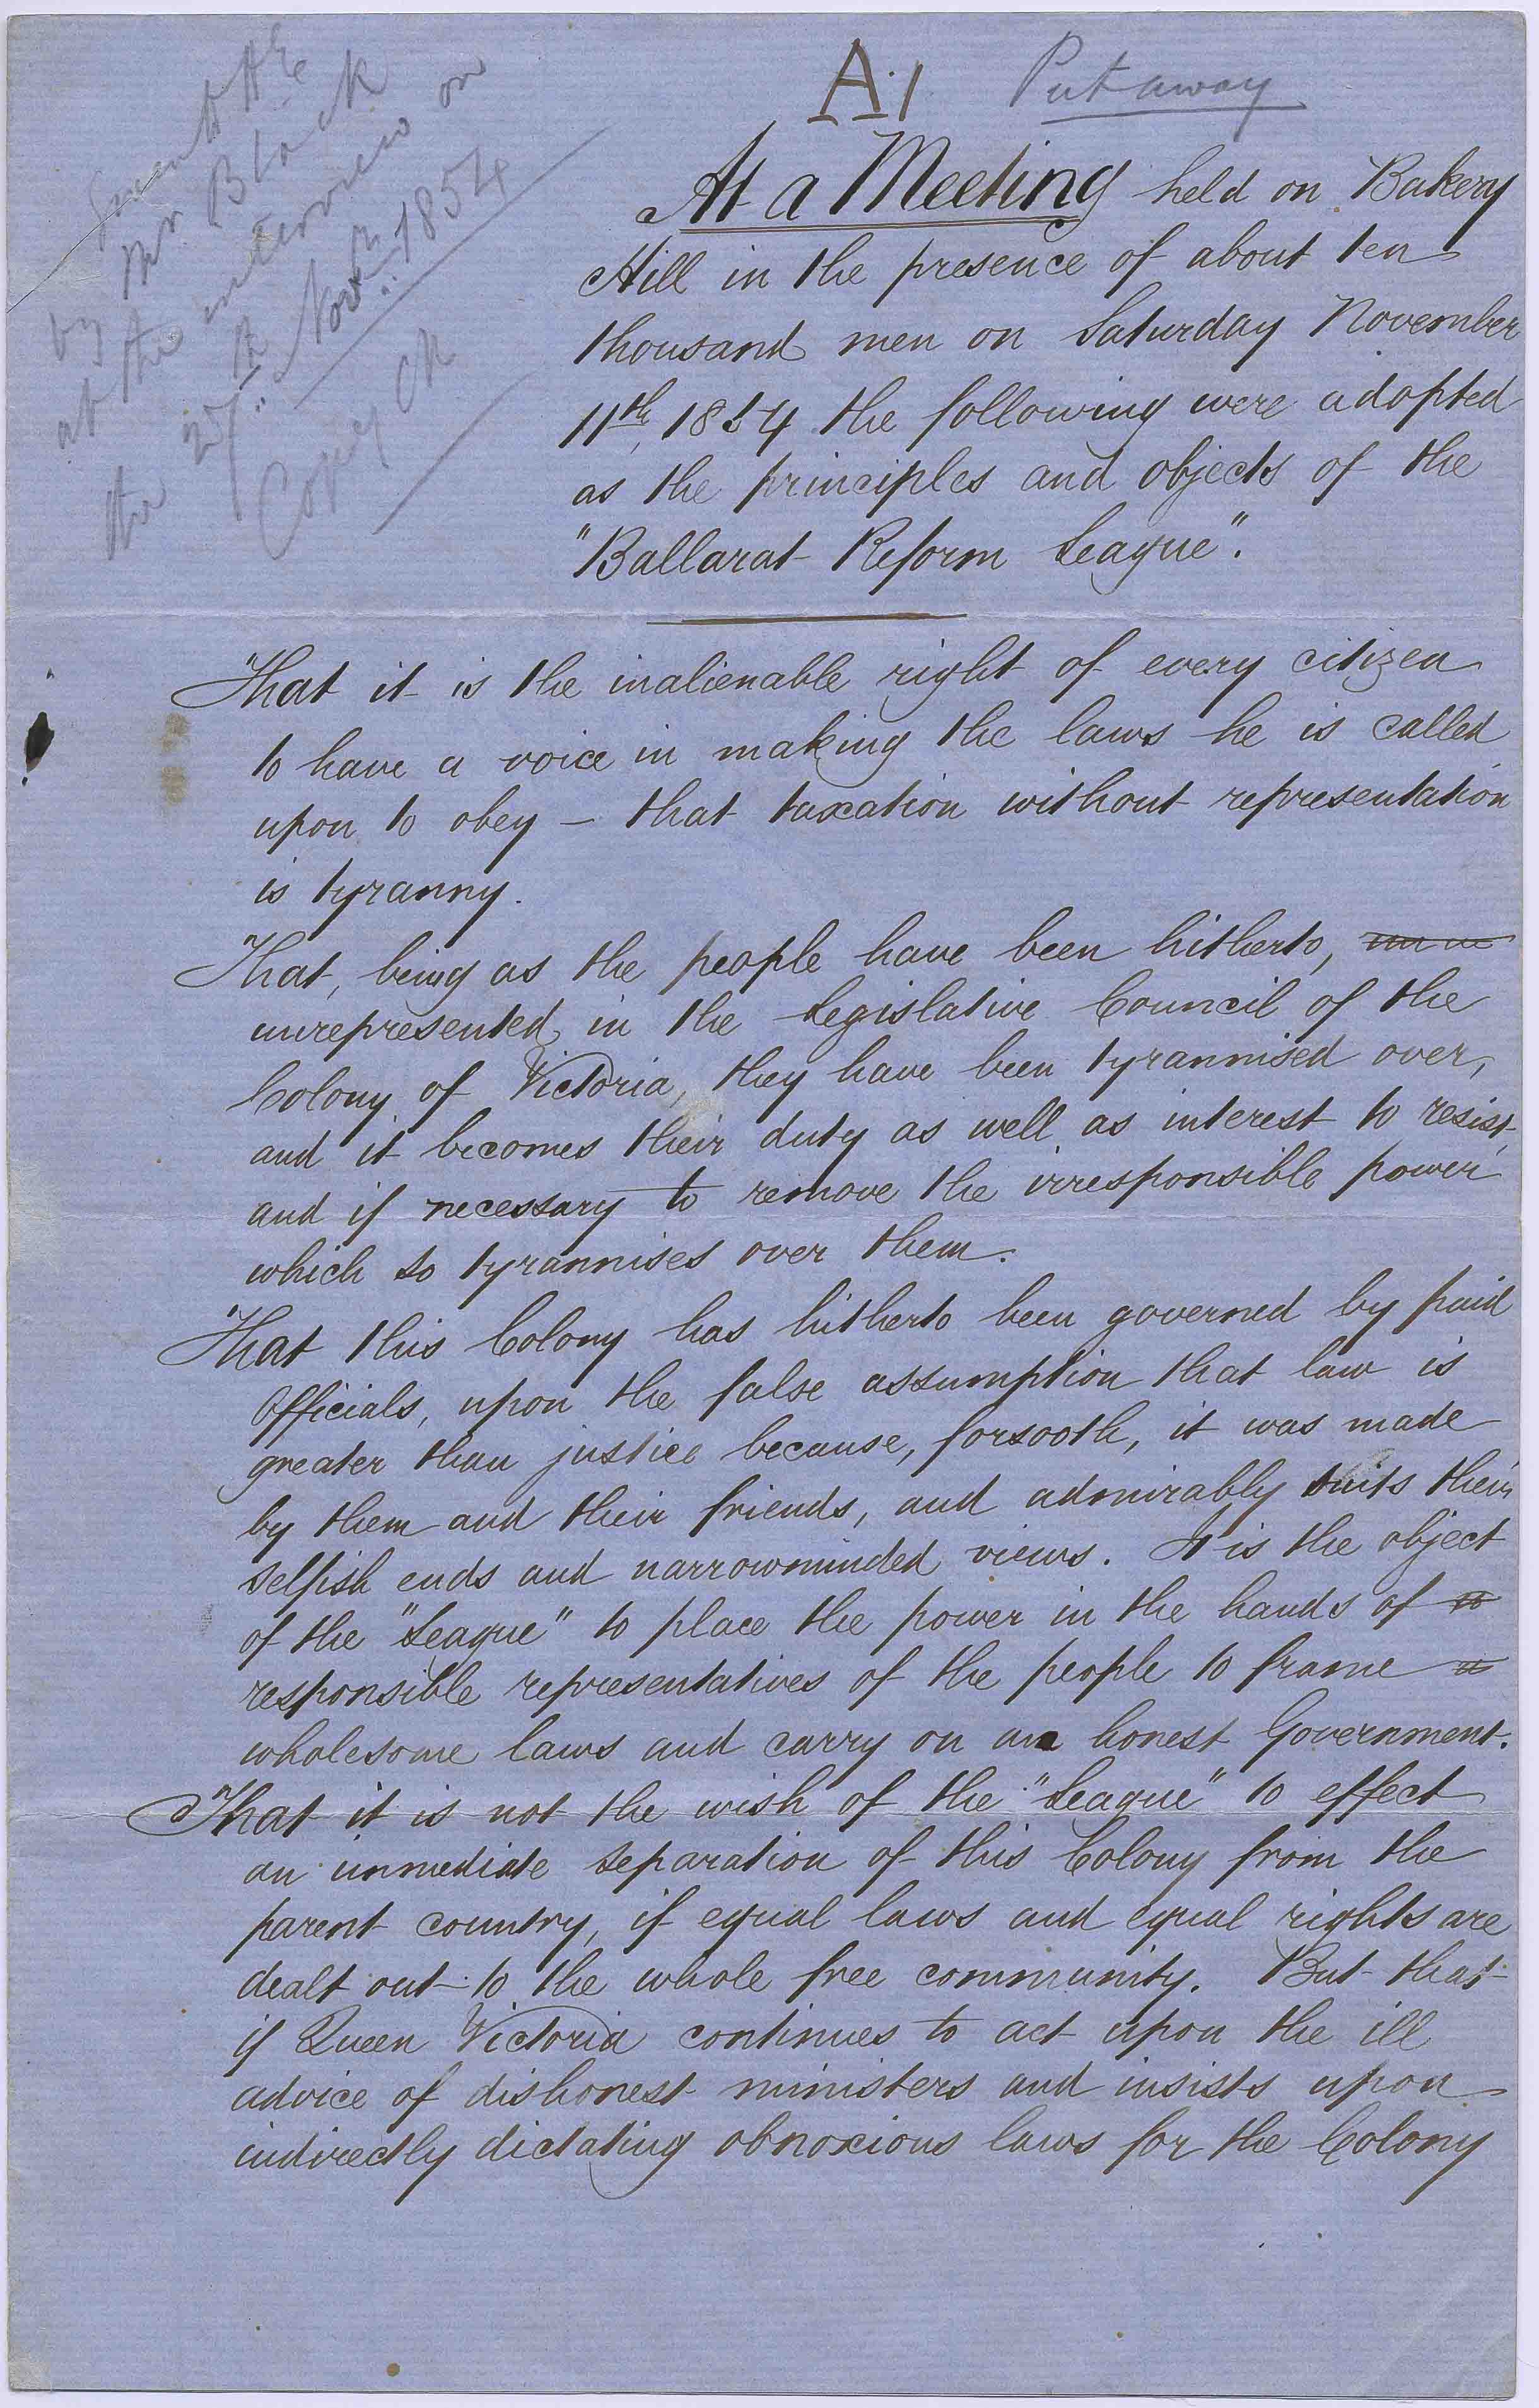 A.1 Put away
by Mr Black
at the interview on
the 27th Novr. 1854
Copy
At a Meeting held on Bakery
Hill in the presence of about ten
thousand men on Saturday November
11th, 1854 the following were adopted
as the principles and objects of the
"Ballarat Reform League".
That it is the inalienable right of every citizen
to have a voice in making the laws he is called
upon to obey – that taxation without representation
is tyranny.
That, being as the people have been hitherto,
unrepresented in the Legislative Council of the
Colony of Victoria, they have been tyrannised over,
and it becomes their duty as well as interest to resist,
and if necessary to remove the irresponsible power
which so tyrannises over them.
That this Colony has hitherto been governed by paid
Officials, upon the false assumption that law is
greater than justice because, forsooth, it was made
by them and their friends, and admirably suits their
selfish ends and narrowminded views. It is the object
of the "League" to place the power in the hands of
responsible representatives of the people to frame
wholesome laws and carry on an honest Government.
That it is not the wish of the "League" to effect
an immediate separation of this Colony from the
parent country, if equal laws and equal rights are
dealt out to the whole free community. But that
if Queen Victoria continues to act upon the ill
advice of dishonest ministers and insists upon
indirectly dictating obnoxious laws for the Colony